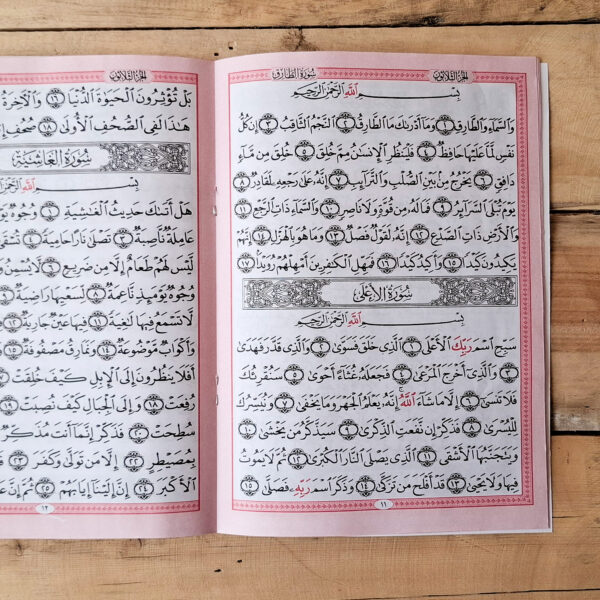 الجُزْءُ الثَّلَاثُونَ سُورَةُ الطَّارِقِ
بِسْمِ اللَّهِ الرَّحْمَٰنِ الرَّحِيمِ
وَالسَّمَاءِ وَالطَّارِقِ ١ وَمَا أَدْرَىٰكَ مَا الطَّارِقُ ٢ النَّجْمُ الثَّاقِبُ ٣ إِن كُلُّ
نَفْسٍ لَّمَّا عَلَيْهَا حَافِظٌ ٤ فَلْيَنظُرِ الْإِنسَٰنُ مِمَّ خُلِقَ ٥ خُلِقَ مِن مَّاءٍ
دَافِقٍ ٦ يَخْرُجُ مِن بَيْنِ الصُّلْبِ وَالتَّرَائِبِ ٧ إِنَّهُ عَلَىٰ رَجْعِهِ لَقَادِرٌ ٨
يَوْمَ تُبْلَى السَّرَائِرُ ٩ فَمَا لَهُ مِن قُوَّةٍ وَلَا نَاصِرٍ ١٠ وَالسَّمَاءِ ذَاتِ الرَّجْعِ ١١
وَالْأَرْضِ ذَاتِ الصَّدْعِ ١٢ إِنَّهُ لَقَوْلٌ فَصْلٌ ١٣ وَمَا هُوَ بِالْهَزْلِ ١٤ إِنَّهُمْ
يَكِيدُونَ كَيْدًا ١٥ وَأَكِيدُ كَيْدًا ١٦ فَمَهِّلِ الْكَٰفِرِينَ أَمْهِلْهُمْ رُوَيْدًا ١٧
سُورَةُ الْأَعْلَىٰ
بِسْمِ اللَّهِ الرَّحْمَٰنِ الرَّحِيمِ
سَبِّحِ اسْمَ رَبِّكَ الْأَعْلَى ١ الَّذِي خَلَقَ فَسَوَّىٰ ٢ وَالَّذِي قَدَّرَ فَهَدَىٰ
٣ وَالَّذِي أَخْرَجَ الْمَرْعَىٰ ٤ فَجَعَلَهُ غُثَاءً أَحْوَىٰ ٥ سَنُقْرِئُكَ
فَلَا تَنسَىٰ ٦ إِلَّا مَا شَاءَ اللَّهُ إِنَّهُ يَعْلَمُ الْجَهْرَ وَمَا يَخْفَىٰ ٧ وَنُيَسِّرُكَ
لِلْيُسْرَىٰ ٨ فَذَكِّرْ إِن نَّفَعَتِ الذِّكْرَىٰ ٩ سَيَذَّكَّرُ مَن يَخْشَىٰ ١٠
وَيَتَجَنَّبُهَا الْأَشْقَى ١١ الَّذِي يَصْلَى النَّارَ الْكُبْرَىٰ ١٢ ثُمَّ لَا يَمُوتُ
فِيهَا وَلَا يَحْيَىٰ ١٣ قَدْ أَفْلَحَ مَن تَزَكَّىٰ ١٤ وَذَكَرَ اسْمَ رَبِّهِ فَصَلَّىٰ ١٥
١١
الجُزْءُ الثَّلَاثُونَ
بَلْ تُؤْثِرُونَ الْحَيَوٰةَ الدُّنْيَا ١٦ وَالْآخِرَةُ
هَٰذَا لَفِي الصُّحُفِ الْأُولَىٰ ١٨ صُحُفِ
سُورَةُ الْغَاشِيَةِ
بِسْمِ اللَّهِ الرَّحْمَٰنِ
هَلْ أَتَىٰكَ حَدِيثُ الْغَٰشِيَةِ ١ وُجُوهٌ
عَامِلَةٌ نَّاصِبَةٌ ٣ تَصْلَىٰ نَارًا حَامِيَةً ٤ تُسْقَىٰ
لَّيْسَ لَهُمْ طَعَامٌ إِلَّا مِن ضَرِيعٍ ٦ لَّا يُسْمِنُ
وُجُوهٌ يَوْمَئِذٍ نَّاعِمَةٌ ٨ لِّسَعْيِهَا رَاضِيَةٌ ٩
لَّا تَسْمَعُ فِيهَا لَٰغِيَةً ١١ فِيهَا عَيْنٌ جَارِيَةٌ ١٢
وَأَكْوَابٌ مَّوْضُوعَةٌ ١٤ وَنَمَارِقُ مَصْفُوفَةٌ ١٥
أَفَلَا يَنظُرُونَ إِلَى الْإِبِلِ كَيْفَ خُلِقَتْ ١٧
رُفِعَتْ ١٨ وَإِلَى الْجِبَالِ كَيْفَ نُصِبَتْ ١٩
سُطِحَتْ ٢٠ فَذَكِّرْ إِنَّمَا أَنتَ مُذَكِّرٌ
بِمُصَيْطِرٍ ٢٢ إِلَّا مَن تَوَلَّىٰ وَكَفَرَ ٢٣
الْأَكْبَرَ ٢٤ إِنَّ إِلَيْنَا إِيَابَهُمْ ٢٥ ثُمَّ إِنَّ
١٢